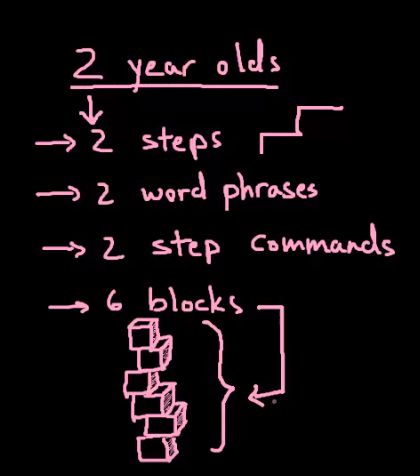 2 year olds
→ 2 steps
→ 2 word phrases
→ 2 step commands
→ 6 blocks